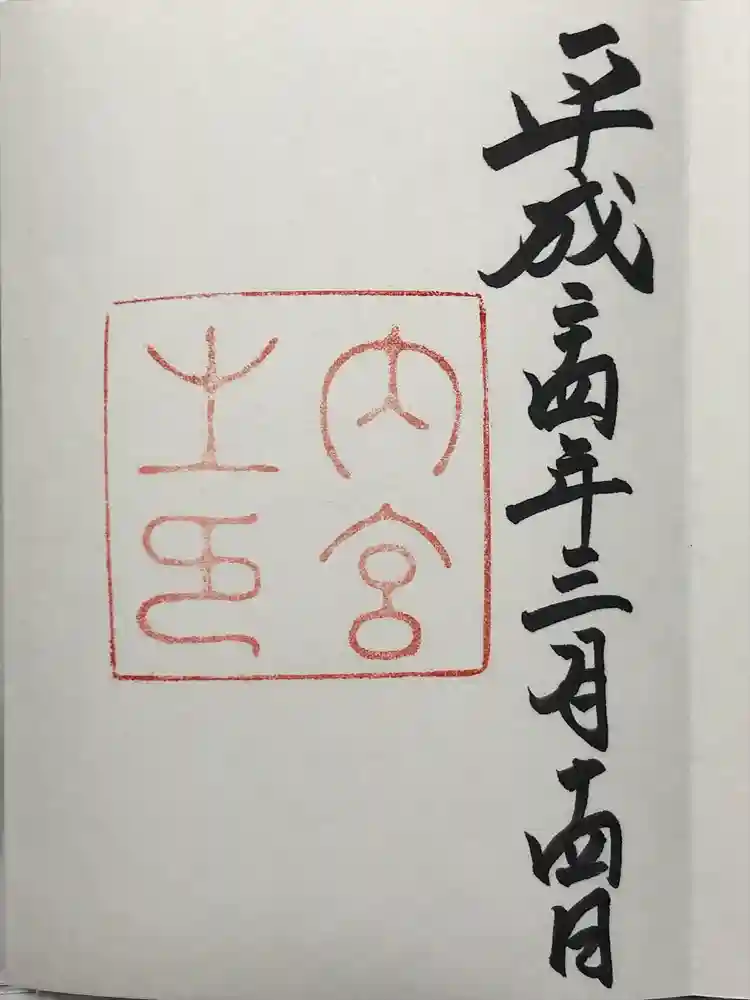 平成二十四年三月十四日
内宮
之印